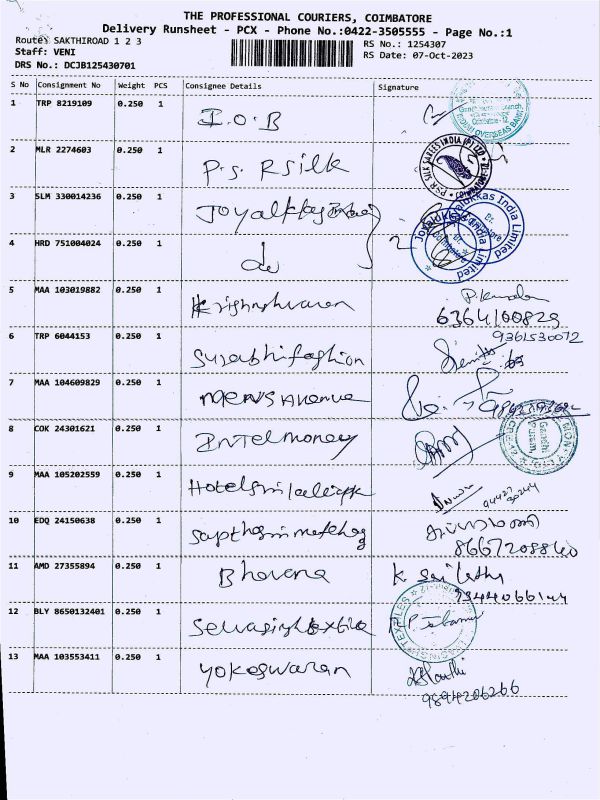 THE PROFESSIONAL COURIERS, COIMBATORE
Delivery Runsheet - PCX - Phone No.:0422-3505555 - Page No.:1
Route: SAKTHIROAD 1 2 3
RS No.: 1254307
Staff: VENI
RS Date: 07-Oct-2023
DRS No.: DCJB125430701
S No Consignment No Weight PCS Consignee Details Signature
1 TRP 8219109 0.250 1 I.O.B
2 MLR 2274603 0.250 1 P.S. R Silk
3 SLM 330014236 0.250 1 Joyalukkas
4 HRD 751004024 0.250 1 do 2
5 MAA 103019882 0.250 1 Krishneshwaran
6364100829
6 TRP 6044153 0.250 1 Surabhi fashion
9361530072
7 MAA 104609829 0.250 1 Mens Avenue
8 COK 24301621 0.250 1 Intel money
9 MAA 105202559 0.250 1 Hotel
10 EDQ 24150638 0.250 1
8667208840
11 AMD 27355894 0.250 1 Bhavana K
12 BLY 8650132401 0.250 1
13 MAA 103553411 0.250 1 Yokeswaran
9894206266